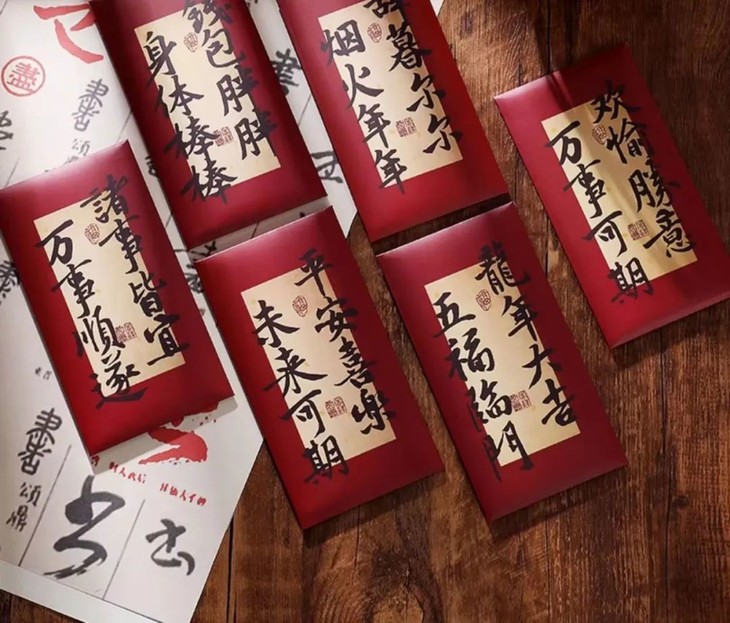 钱包胖胖
身体棒棒
辞暮尔尔
烟火年年
欢愉勝意
万事可期
諸事皆宜
万事順遂
平安喜樂
未来可期
龍年大吉
五福臨門
書頌鼎